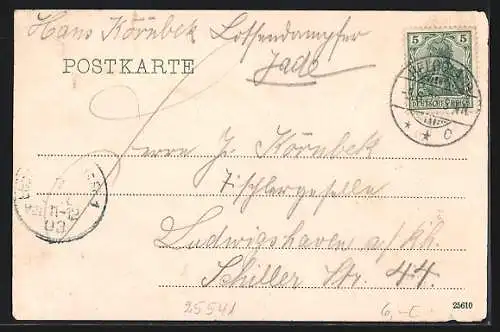 Hans Körnbek Lotsendampfer
Jade
POSTKARTE
5 5
DEUTSCHES REICH
HELGOLAND
Herrn J. Körnbek
Tischlergeselle
Ludwigshaven a/Rh.
Schiller Str. 44.
11-12
03
25541
6,-
25610